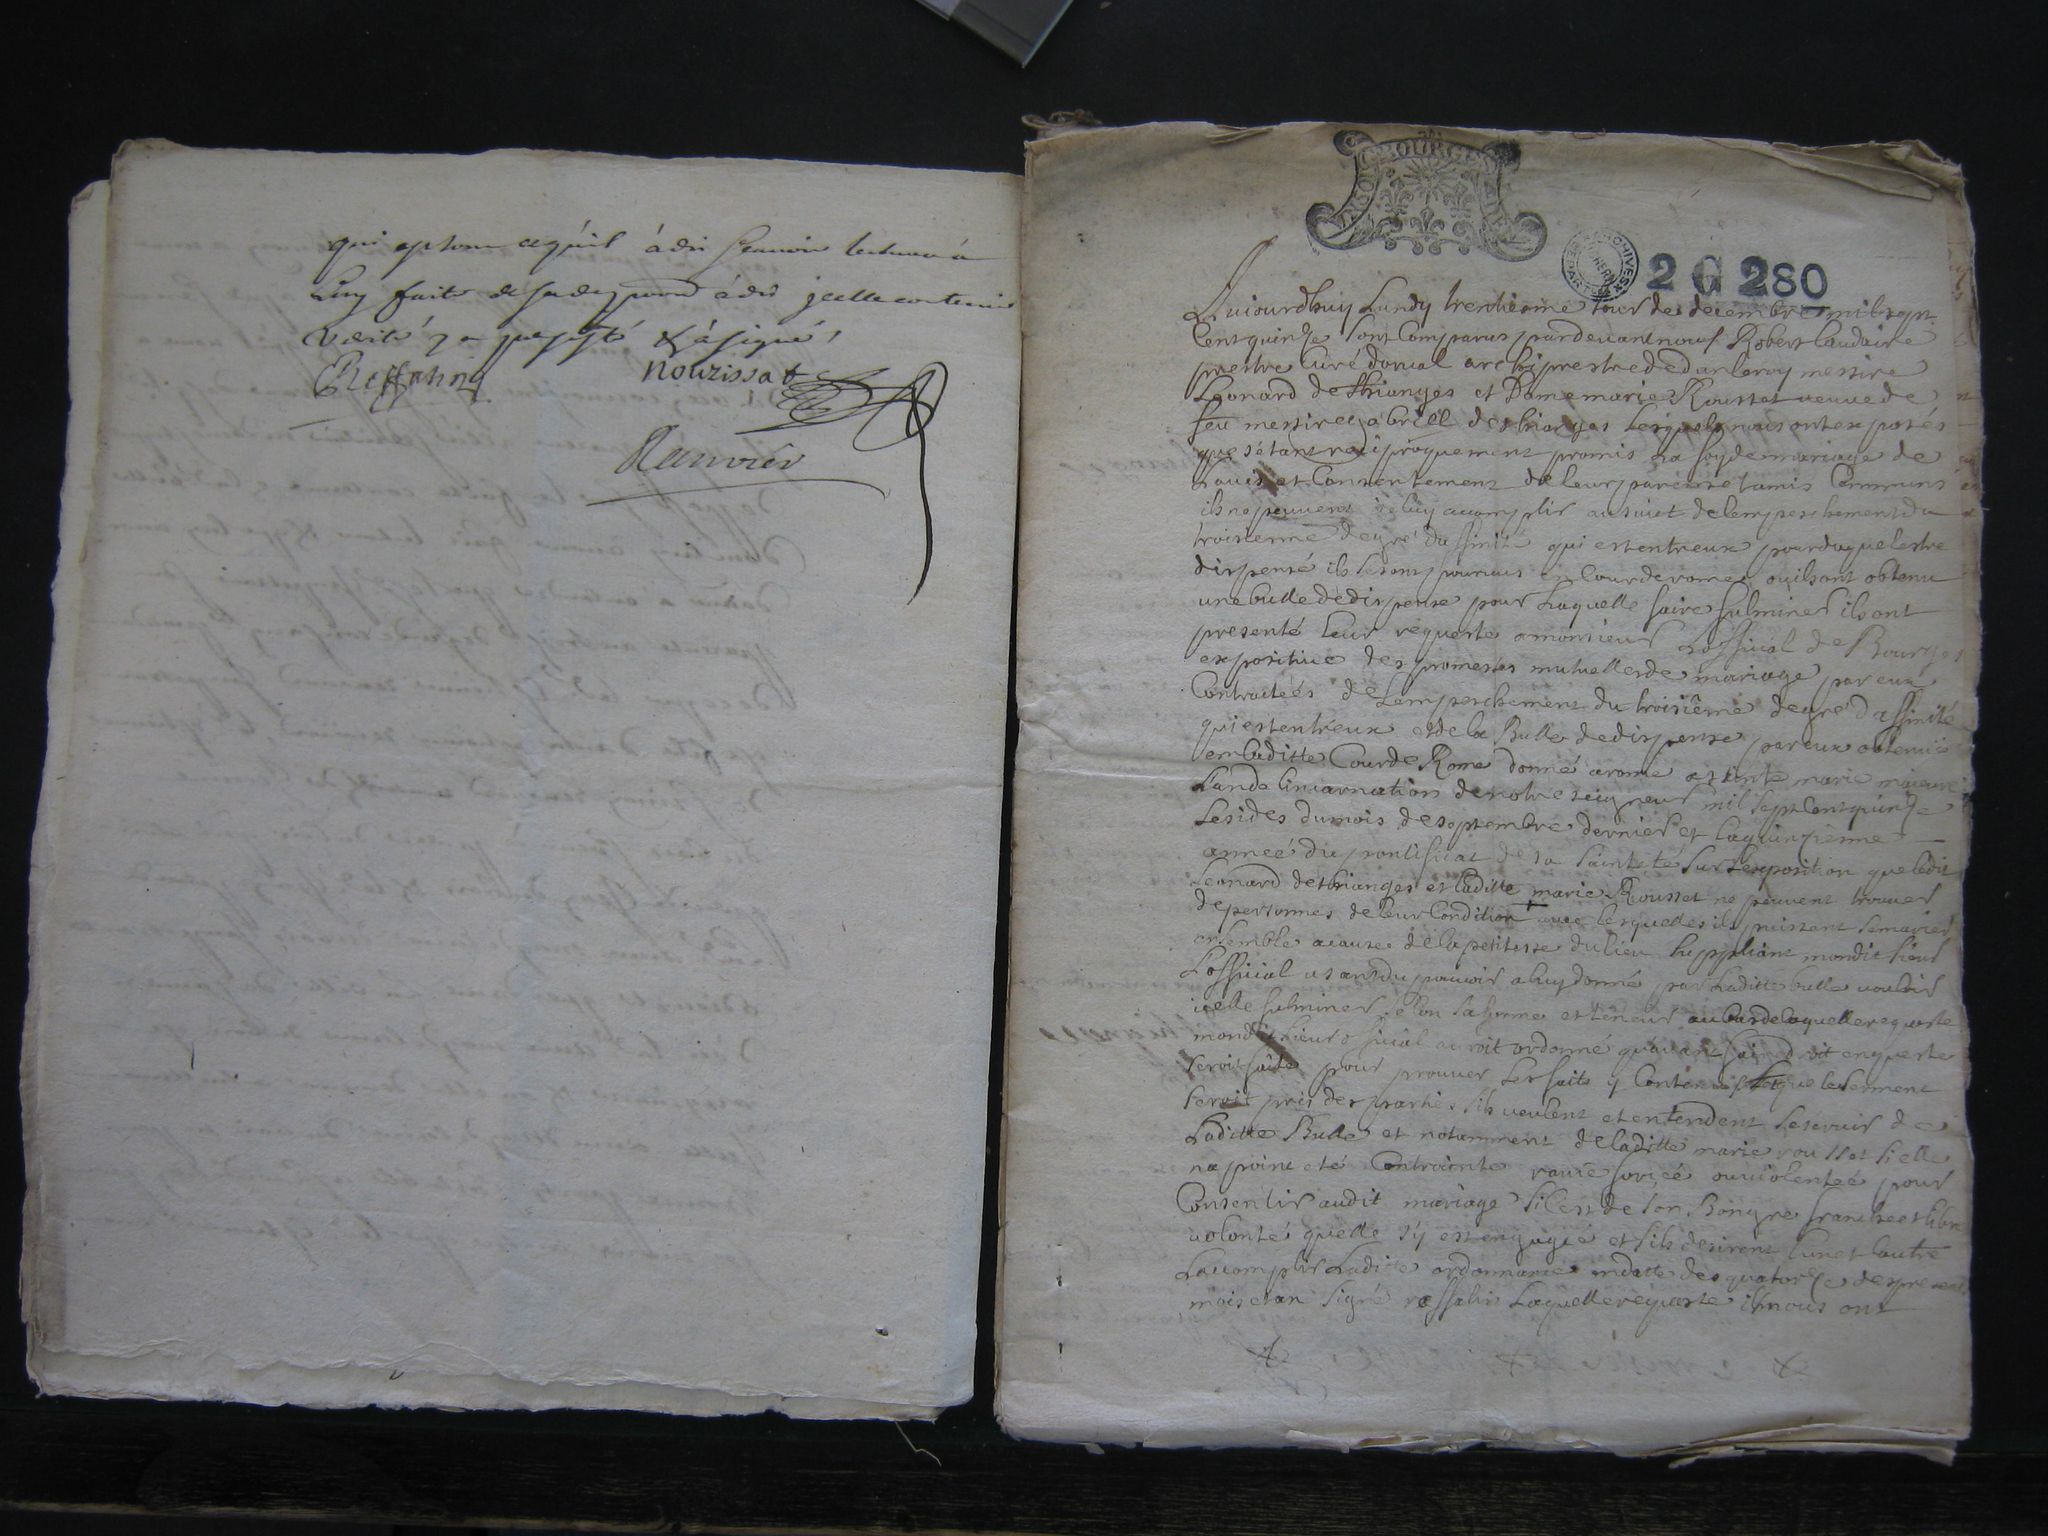 qui est tout ce qu'il à dit scauoir lecture à
Luy faite de sa deposition à dit jcelle contenir
verité y a persisté & à signé,
Nouzissat
Rauvier
BOURGES
ARCHIVES DEPARTles CHER
2 G 280
Aujourdhuy Lundy trentieme jour de decembre mil sept
Cent quinze sont Comparus pardeuant nous Robert Caudaire
prestre curé dorual archiprestre de dunleroy messire
Leonard de thianges et Dame marie Rousset veuve de
feu messire gabriel de thianges Lesquels nous ont exposés
que s'étant reciproquement promis La foy de mariage de
Lauis et Consentement de leurs parens et amis Communs
ils ne peuvent iceluy accomplir au sujet de lempeschement du
troisieme degré daffinité qui est entreux pour duquel estre
dispensé ils se sont pouruus en Cour de rome ou ils ont obtenu
une bulle de dispense pour Laquelle faire fulminer ils ont
presenté leur requeste a monsieur Lofficial de Bourges
expositive des promesses mutuelles de mariage par eux
Contractées de Lempeschement du troisième degré daffinité
qui est entreux et de la Bulle de dispense par eux obtenüe
en laditte Cour de Rome donné a rome a s.te marie majeure
Lan de lincarnation de notre seigneur mil sept Cent quinze
Les ides du mois de septembre dernier et la quinzieme
année du pontificat de sa sainteté sur lexposition que ledit
Leonard de thianges et laditte marie Rousset ne peuvent trouver
de personnes de leur Condition avec lesquelles ils puissent se marier
ensemble a cause de la petitesse du lieu suppliant mondit sieur
Lofficial usant du pouvoir a luy donné par Laditte bulle vouloir
icelle fulminer selon sa forme et teneur au bas de laquelle requeste
mondit sieur official auroit ordonné quavant faire droit enqueste
seroit faite pour prouver Les faits y Contenus et que le serment
seroit pris des parties sils veulent et entendent se servir de
Laditte Bulle et notamment de laditte marie rousset si elle
na point eté Contrainte ravie forcée ou violentée pour
Consentir audit mariage si cest de son Bon gre franche et libre
volonté quelle s'y est engagée et sils desirent lun et lautre
Laccomplir Laditte ordonnance en datte des quatorze des present
mois et an signé Laquelle requeste ils nous ont